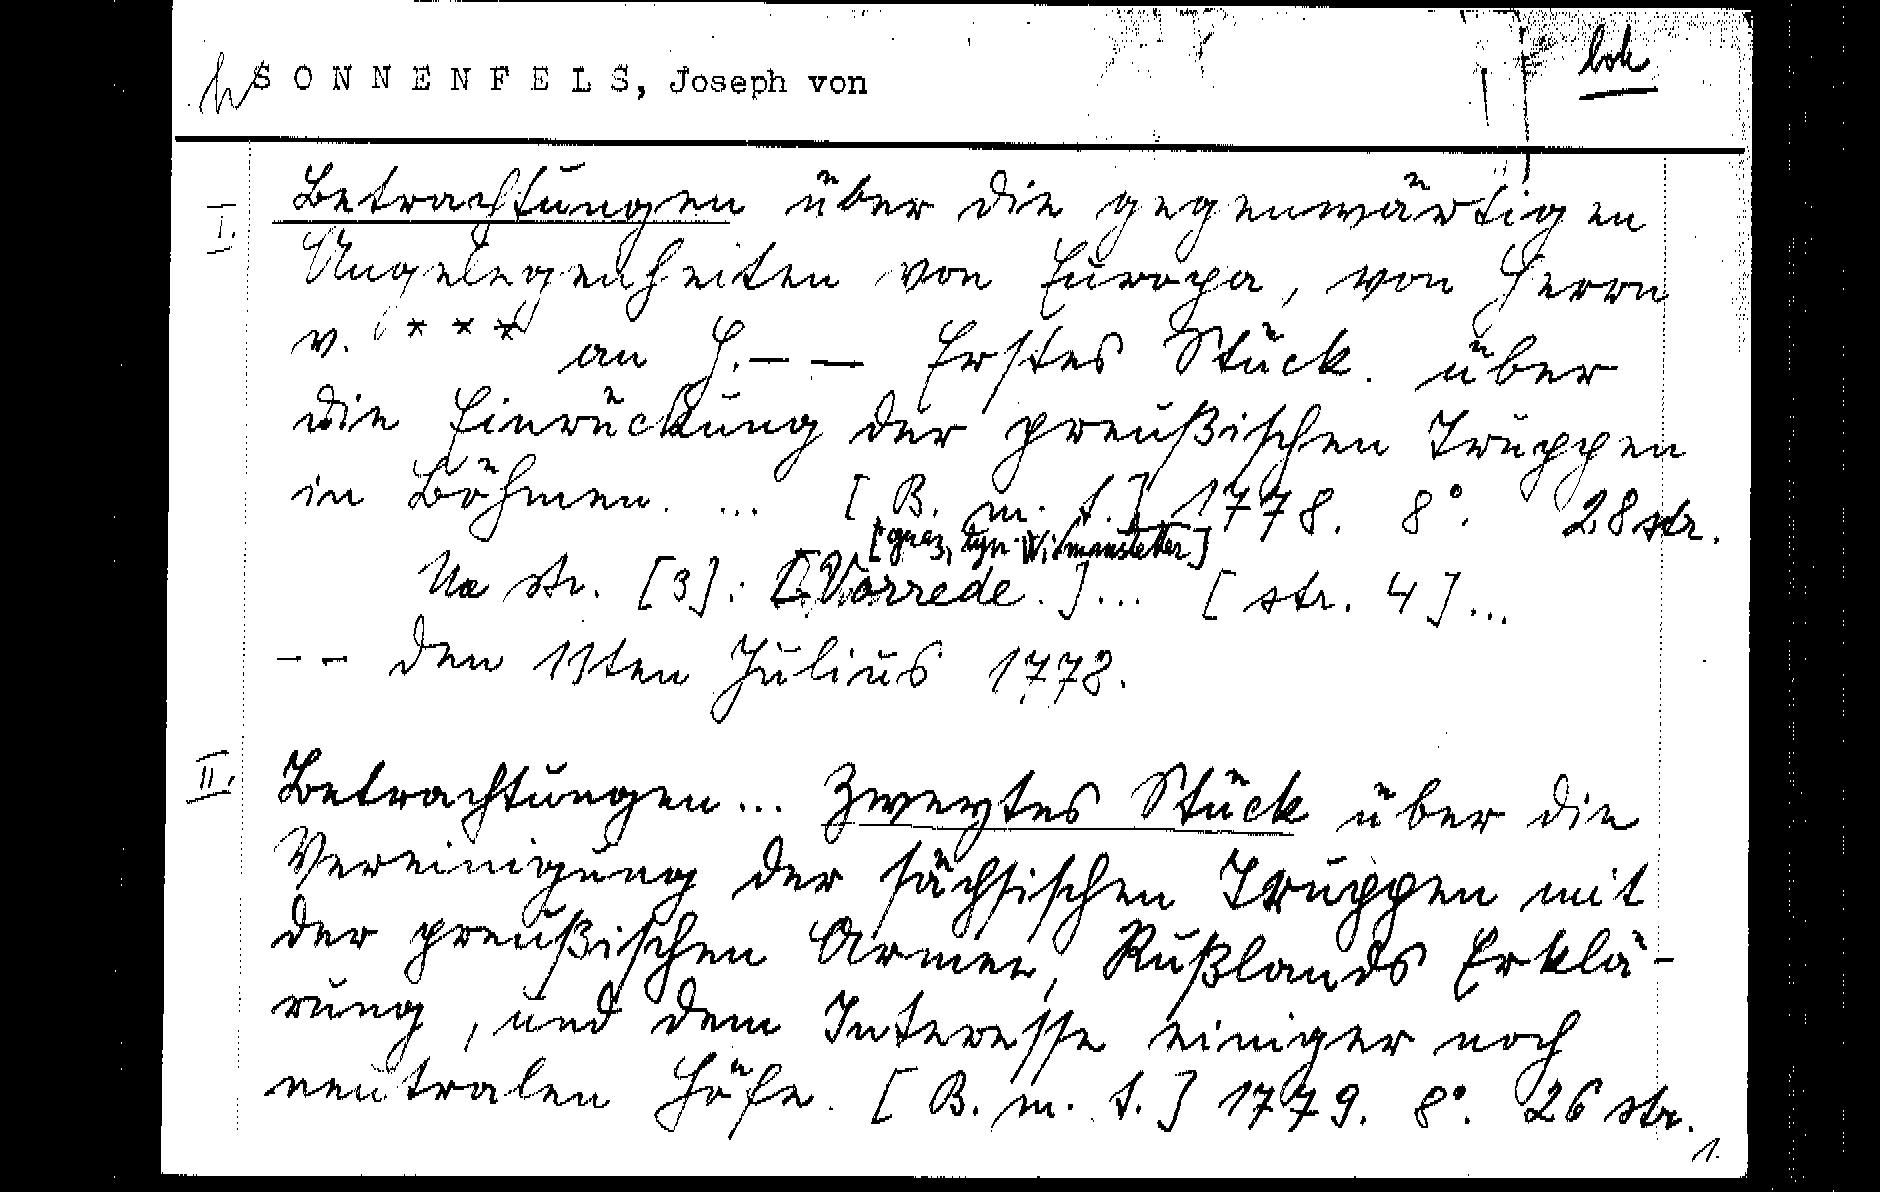 SONNENFELS, Joseph von
bsk
I.
Betrachtungen über die gegenwärtigen
Angelegenheiten von Europa, von Herrn
v. *** an H. — — Erstes Stück. über
die Einrückung der preußischen Truppen
in Böhmen. ... [B. m. t.] 1778. 8°. 28 str.
[Graz, typ. Widmanstetter]
Na str. [3]: [Vorrede.]... [str. 4]...
-- den 13ten Julius 1778.
II.
Betrachtungen... Zweytes Stück über die
Vereinigung der sächsischen Truppen mit
der preußischen Armee, Rußlands Erklä-
rung, und dem Interesse einiger noch
neutralen Höfe. [B. m. t.] 1779. 8°. 26 str.
1.